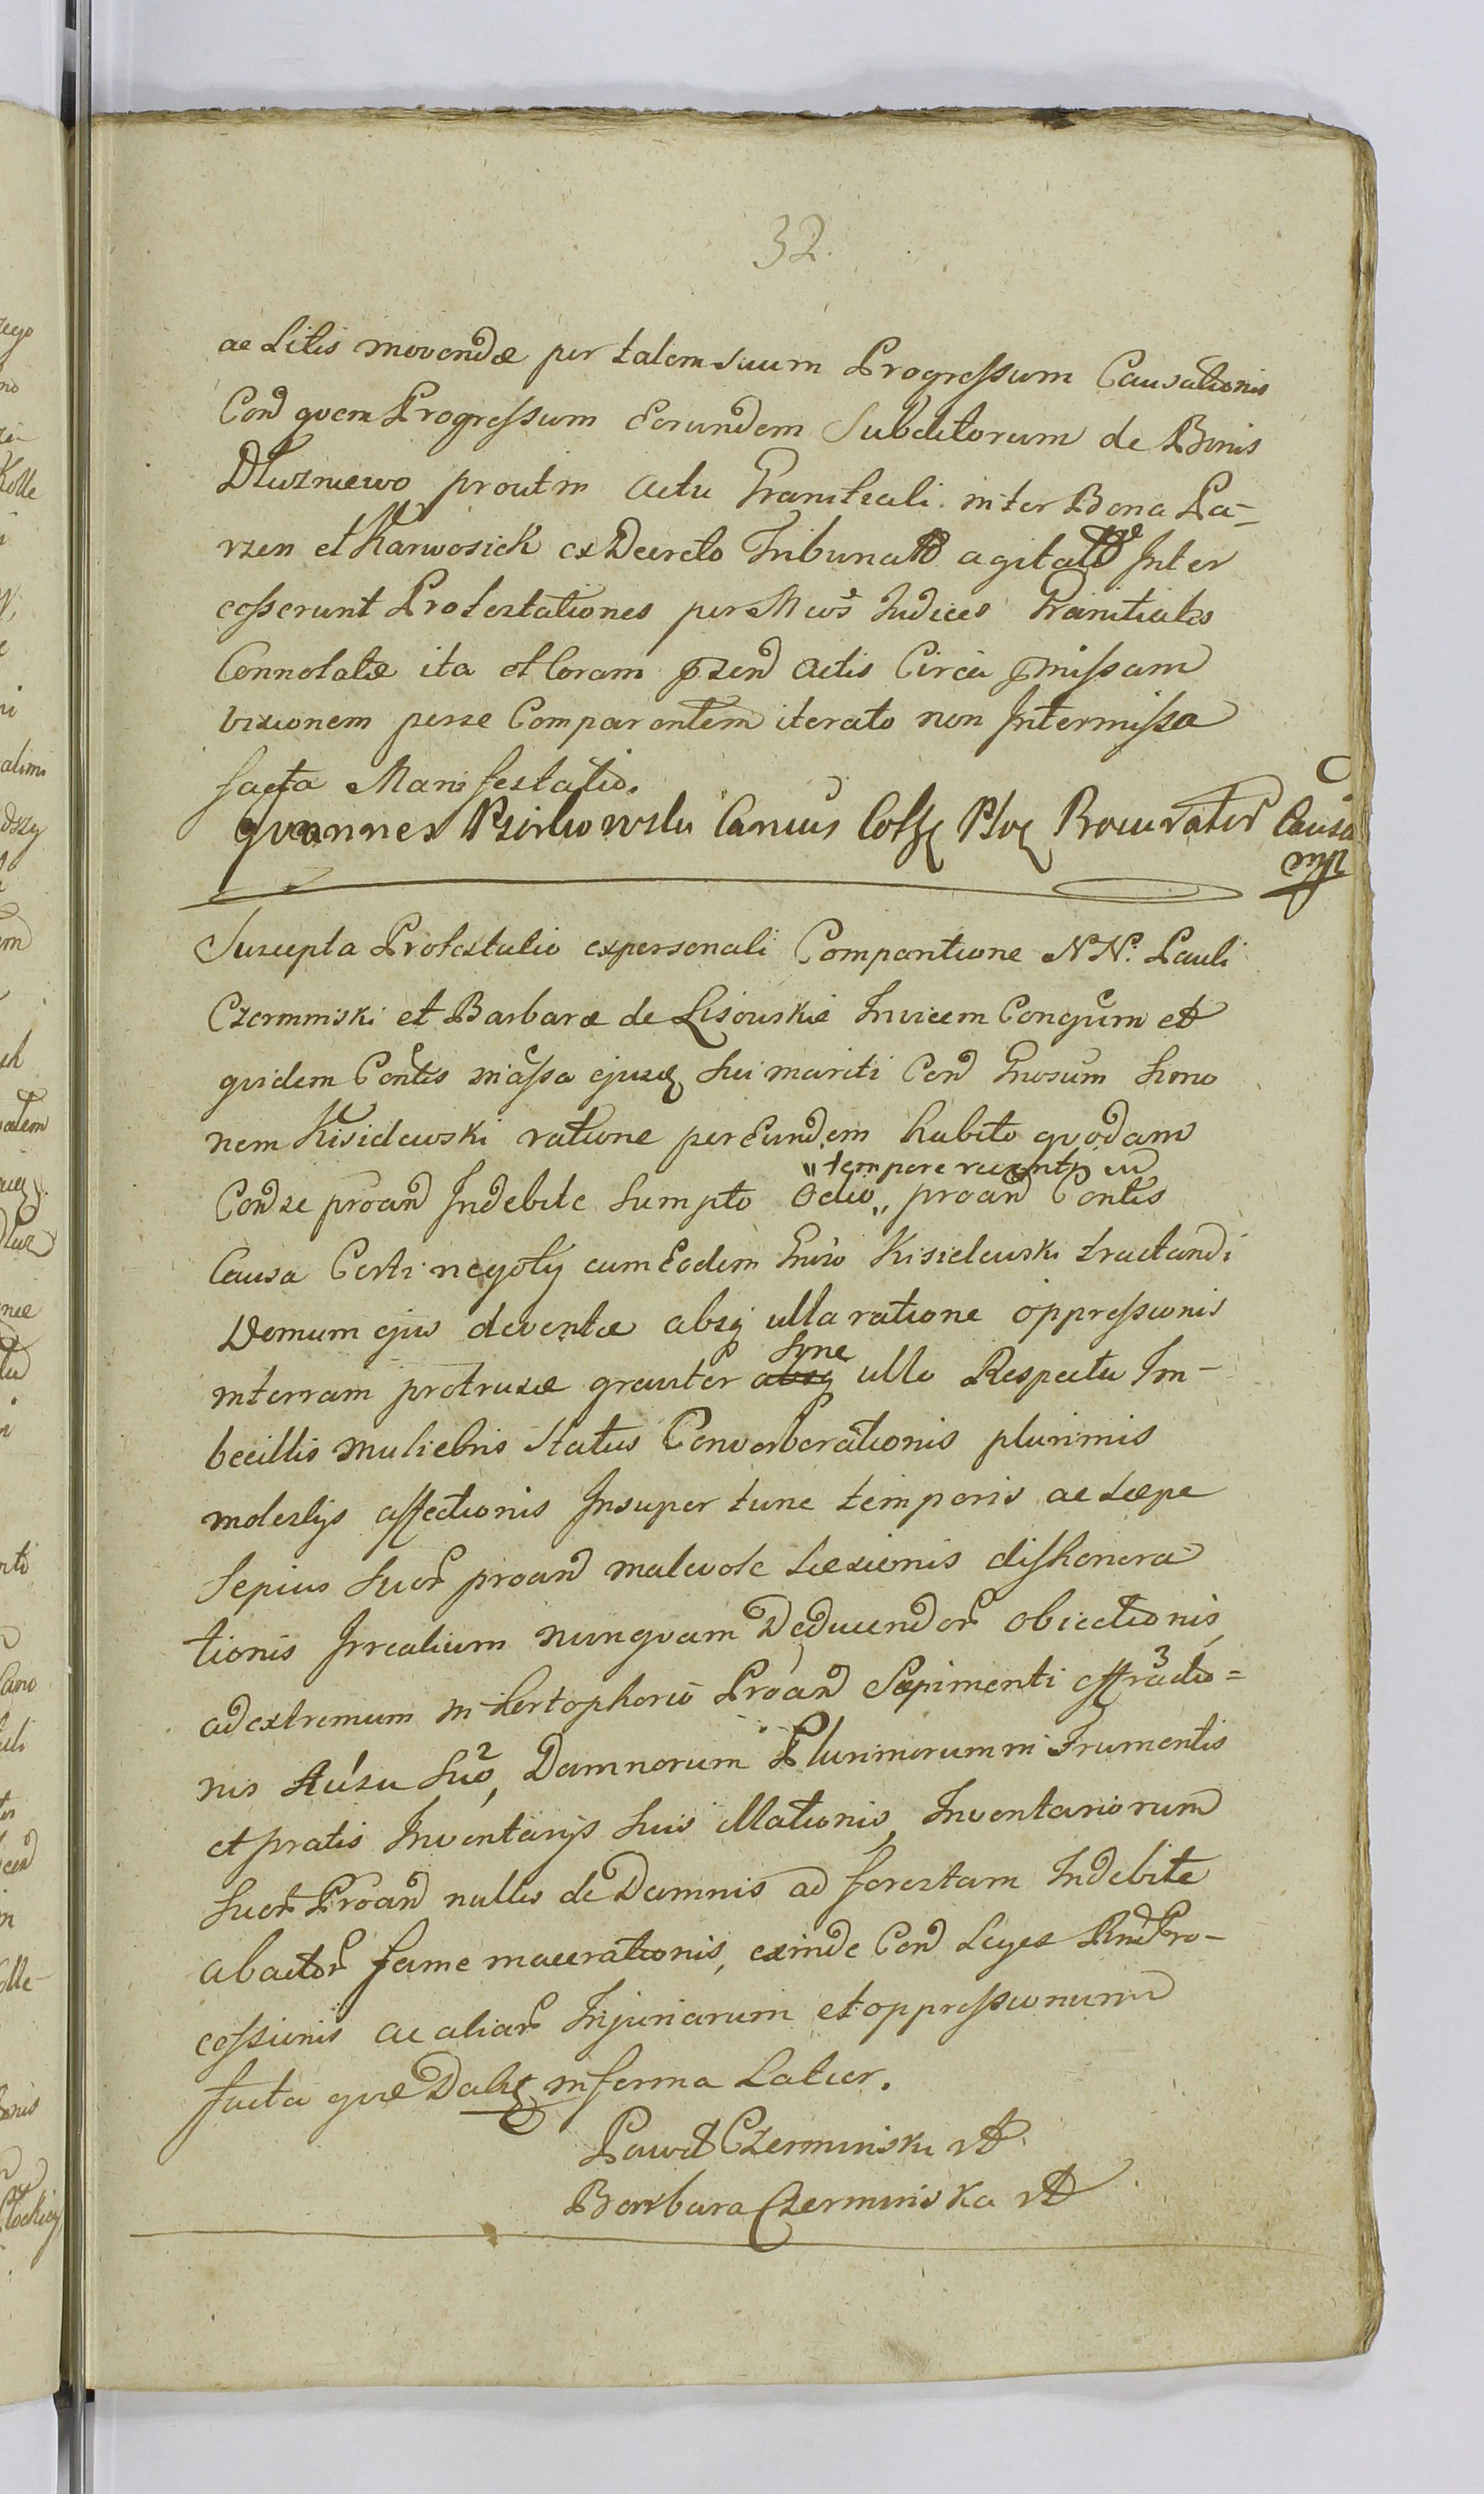 32.
ac Litis movendæ per talem suum Progressum Causationis
Cond quem Progressum Eorundem Subditorum de Bonis
Dłuzniewo prout in actu Granitiali inter Bona Pa-
rzen et Karwosiek ex Decreto Tribunat agitato Inter
cesserunt Protestationes per Mcos Judices Granitiales
Connotatæ ita et Coram pzend actis Circa pmissam
visionem per se Comparentem iterato non Intermissa
facta Manifestatio.
Canciis Procurator Causæ
mp
Suscepta Protestatio ex personali Comparitione NN. Pauli
Czerminski et Barbaræ de Lisowskie Invicem Congum et
quidem Contis in assa ejusq sui mariti Cond Gnosum Simo
nem Kisielewski ratione per Eundem habito quodam
Cond se proand Indebite Sumpto Odio,, proand Contis
"tempore recenti
Causa Certi negotij cum Eodem Gnso Kisielewski tractandi
Domum ejus deventæ absq ulla ratione oppressionis
in terram protrusæ graviter absq ullo Respectu Im-
Syne
becillis muliebris Status Converberationis plurimis
molestijs affectionis Insuper tunc temporis ac sæpe
Sepius Suor proand malevole Læsionis dishonora
tionis Irrealium nunquam Deducendor obiectionis,
ad extremum in hortophorio Proand Sepimenti effractio=
3
nis Ausu Suo, Damnorum Plurimorum in Frumentis
2
et pratis Inventarijs Suis illationis, Inventariorum
Suor Proand nullis de Damnis ad forestam Indebite
abactor fame macerationis, exinde Cond Leges Rnd Pro-
cessionis ac aliar Injuriarum et oppressionum
facta quæ Dabit in forma Latior.
Paweł Czerminski
Barbara Czerminska